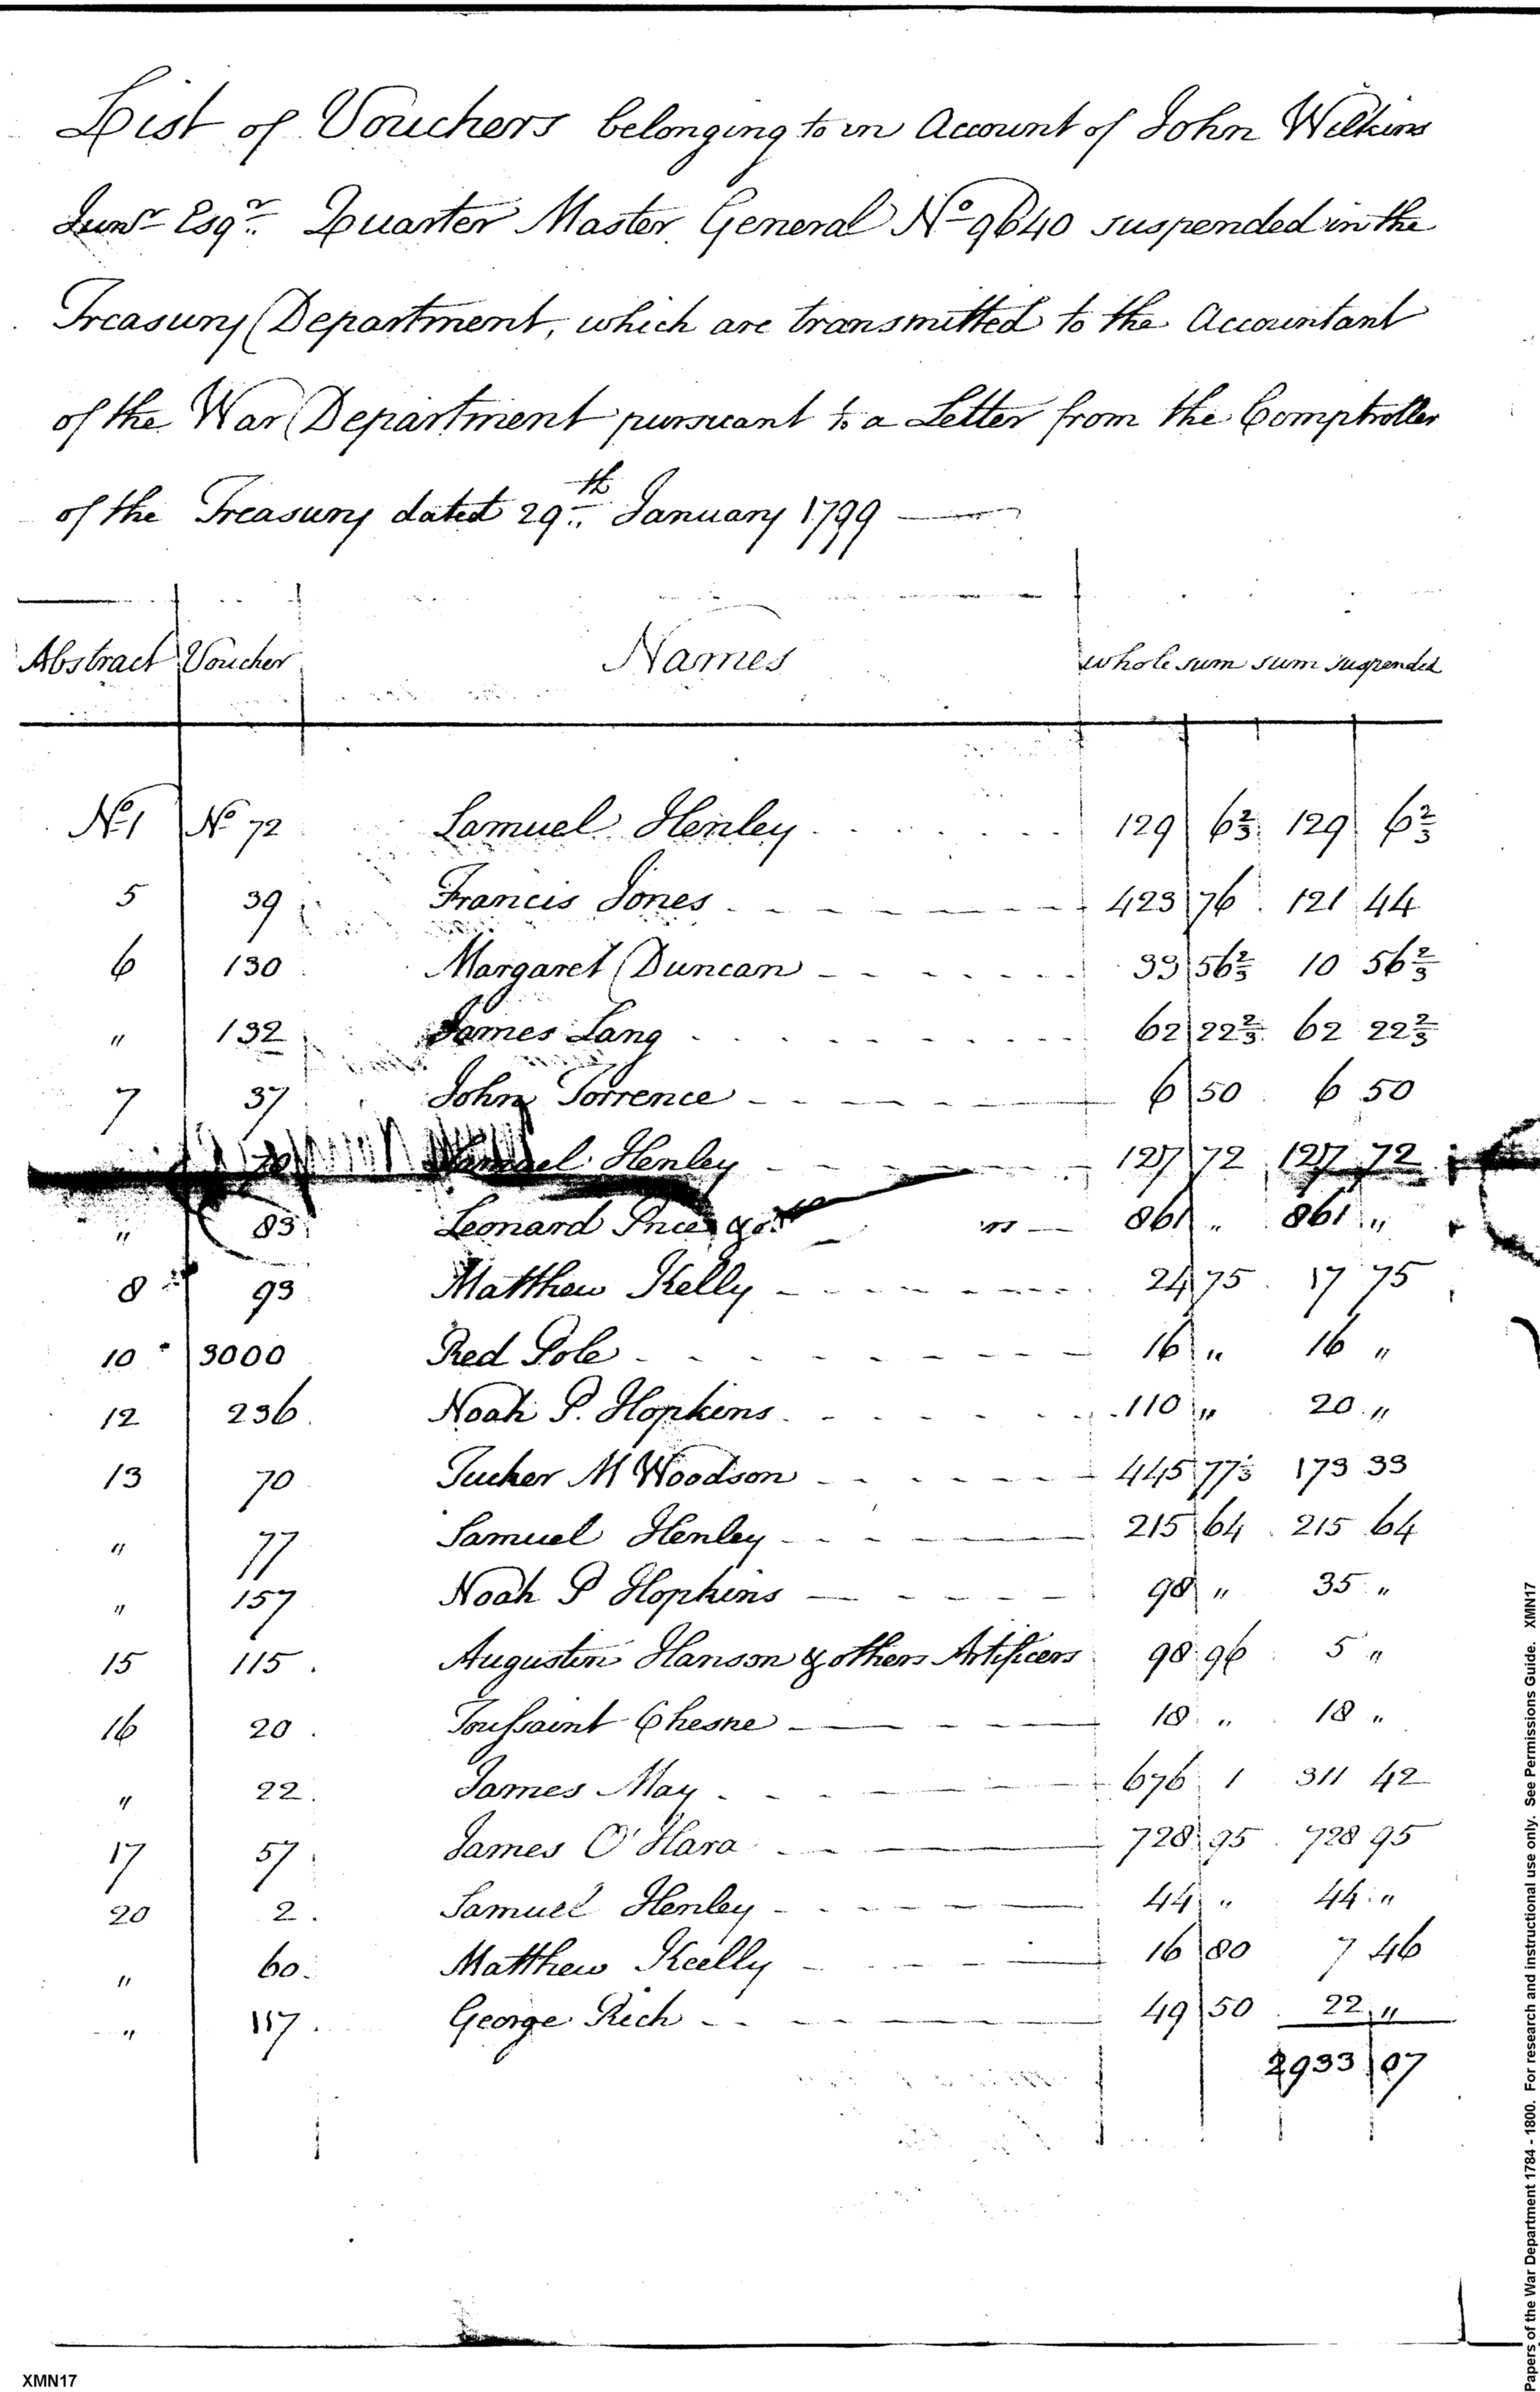 List of Vouchers belonging to in Account of John Wilkins
Junr Esqr. Quarter Master General No 9640 suspended in the
Treasury Department, which are transmitted to the Accountant
of the War Department pursuant to a Letter from the Comptroller
of the Treasury dated 29th January 1799
Abstract Voucher Names whole sum sum suspended
No 1 No 72 Samuel Henley 129 6 2/3 129 6 2/3
5 39 Francis Jones 423 76 121 44
6 130 Margaret Duncan 33 56 2/3 10 56 2/3
" 132 James Lang 62 22 2/3 62 22 2/3
7 37 John Torrence 6 50 6 50
Samuel Henley 127 72 127 72
" 83 Leonard Price 861 " 861 "
8 93 Matthew Kelly 24 75 17 75
10 3000 Red Pole 16 " 16 "
12 236 Noah P. Hopkins 110 " 20 "
13 70 Tucker M Woodson 445 77 1/3 173 33
" 77 Samuel Henley 215 64 215 64
" 157 Noah P Hopkins 98 " 35 "
15 115 Augustin Hanson & others Artificers 98 96 5 "
16 20 Toussaint Chesne 18 " 18 "
" 22 James May 676 1 311 42
17 57 James O'Hara 728 95 728 95
20 2 Samuel Henley 44 " 44 "
" 60 Matthew Keelly 16 80 7 46
" 117 George Rich 49 50 22 "
2933 07
XMN17
Papers of the War Department 1784 - 1800. For research and instructional use only. See Permissions Guide. XMN17